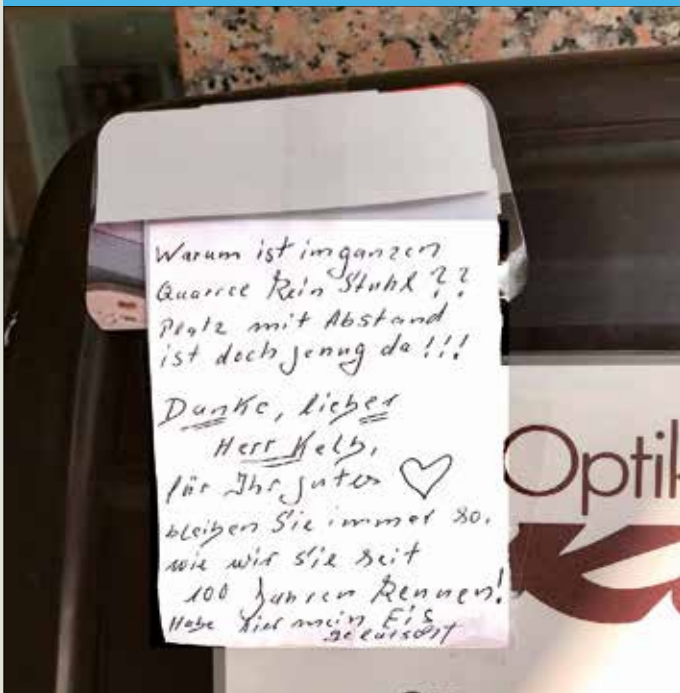 Warum ist im ganzen
Quarree kein Stuhl ??
Platz mit Abstand
ist doch genug da !!!
Danke, lieber
Herr Kelb,
für Ihr gutes ♡
bleiben Sie immer so,
wie wir Sie seit
100 Jahren kennen!
Habe hier mein Eis
Optik